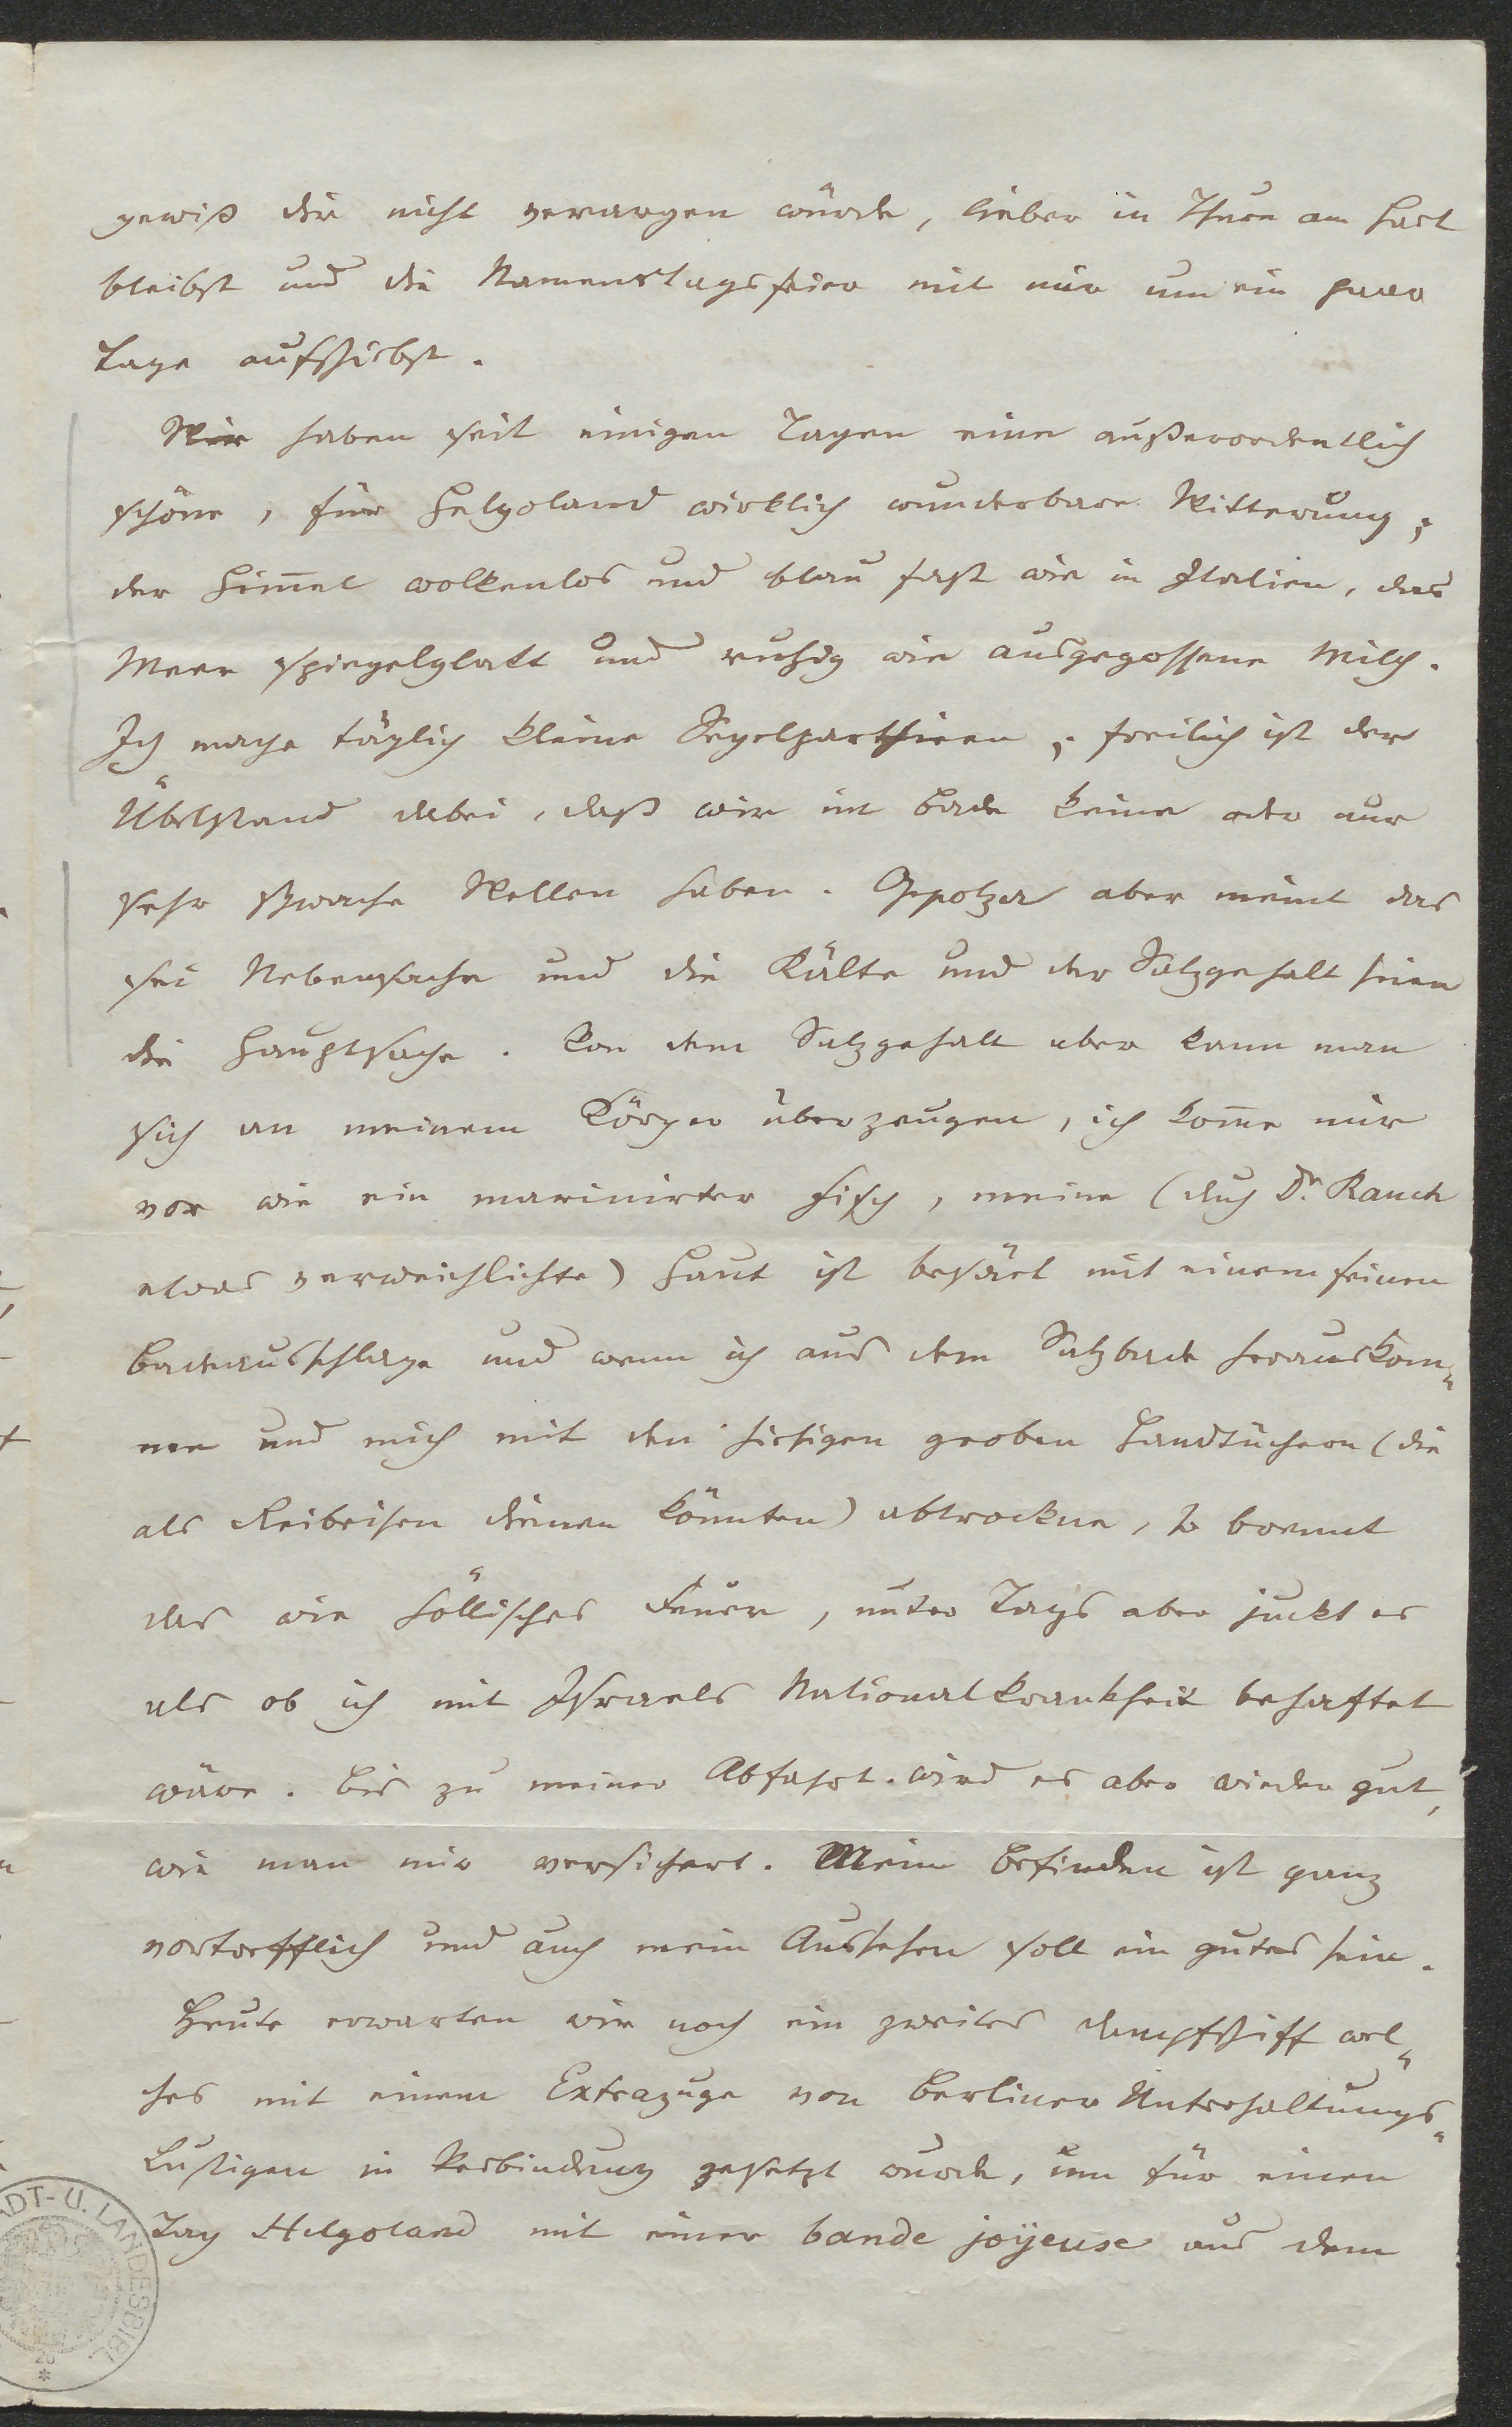 gewiß dir nicht verargen würde, lieber in Thurn am Hart
bleibst und die Namenstagsfeier mit mir um ein paar
Tage aufschiebst.
Wir haben seit einigen Tagen eine außerordentlich
schöne, für Helgoland wirklich wunderbare Witterung;
der Him̄el wolkenlos und blau fast wie in Italien, das
Meer spiegelglatt und ruhig wie ausgegossene Milch.
Ich mache täglich kleine Segelparthieen; freilich ist der
Übelstand dabei, daß wir im Bade keine oder nur
sehr schwache Wellen haben. Oppolzer aber meint das
sei Nebensache und die Kälte und der Salzgehalt seien
die Hauptsache. Von dem Salzgehalt aber kann man
sich an meinem Körper überzeugen, ich kom̄e mir
vor wie ein marinirter Fisch, meine (durch Dr Rauch
etwas verweichlichte) Haut ist besäet mit einem feinen
Badeausschlage und wenn ich aus dem Salzbade herauskom-
me und mich mit den hiesigen groben Handtüchern (die
als Reibeisen dienen könnten) abtrockne, so brennt
das wie höllisches Feuer, unter Tags aber juckt es
als ob ich mit Israels Nationalkrankheit behaftet
wäre. Bis zu meiner Abfahrt wird es aber wieder gut,
wie man mir versichert. Mein Befinden ist ganz
vortrefflich und auch mein Aussehen soll ein gutes sein.
Heute erwarten wir noch ein zweites Dampfschiff wel-
ches mit einem Extrazuge von Berliner Unterhaltungs-
Lustigen in Verbindung gesetzt wurde, um für einen
Tag Helgoland mit einer bande joÿeuse aus dem
ADT- U. LANDESBIBL